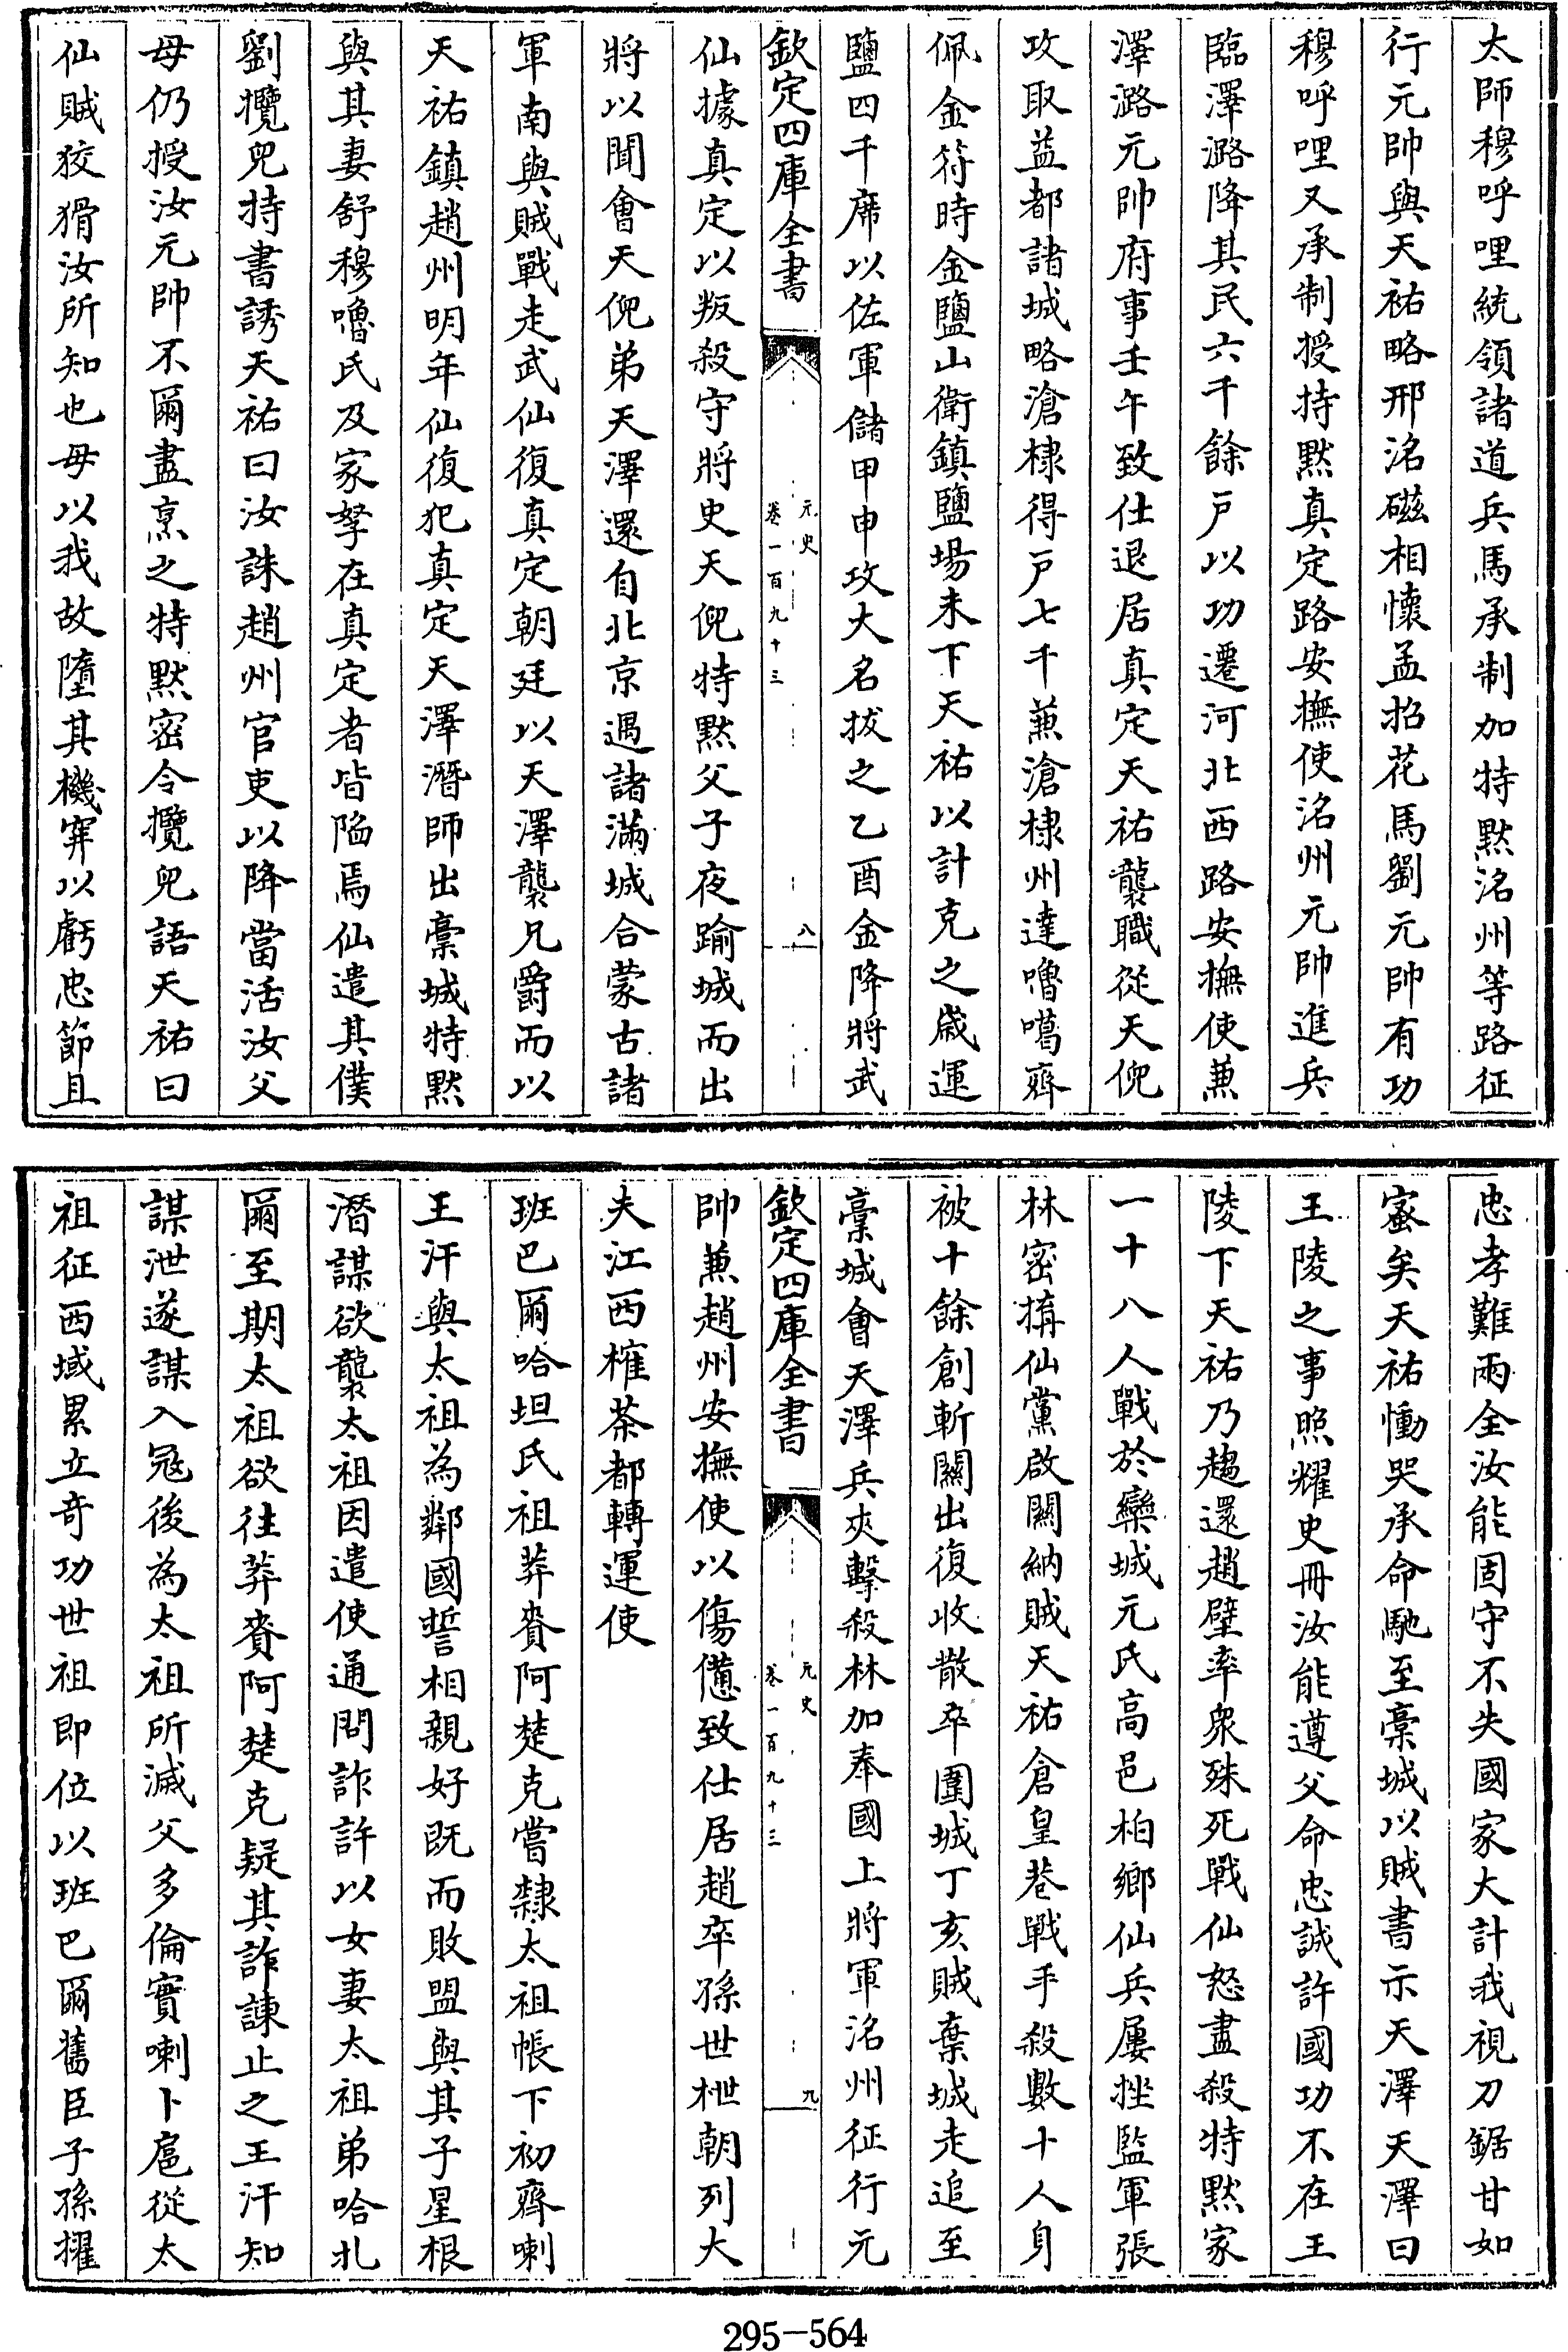 太師穆呼哩統領諸道兵馬承制加特默洺州等路征
行元帥與天祐略邢洺磁相懷孟招花馬劉元帥有功
穆呼哩又承制授持黙真定路安撫使洺州元帥進兵
臨澤潞降其民六千餘戸以功遷河北西路安撫使兼
澤潞元帥府事壬午致仕退居真定天祐襲職從天倪
攻取益都諸城略滄棣得戸七千兼滄棣州達嚕噶齊
佩金符時金鹽山衛鎮鹽場未下天祐以計克之歲運
鹽四千席以佐軍儲甲申攻大名拔之乙酉金降將武
欽定四庫全書
元史
卷一百九十三
八
仙據真定以叛殺守將史天倪特黙父子夜踰城而出
將以聞會天倪弟天澤還自北京遇諸滿城合蒙古諸
軍南與賊戰走武仙復真定朝廷以天澤襲兄爵而以
天祐鎮趙州明年仙復犯真定天澤潛師出藁城特黙
與其妻舒穆嚕氏及家孥在真定者皆陥焉仙遣其僕
劉攬兒持書誘天祐曰汝誅趙州官吏以降當活汝父
母仍授汝元帥不爾盡烹之特黙密令攬兒語天祐曰
仙賊狡猾汝所知也毋以我故墮其機穽以虧忠節且
忠孝難兩全汝能固守不失國家大計我視刀鋸甘如
蜜矣天祐慟哭承命馳至藁城以賊書示天澤天澤曰
王陵之事照耀史冊汝能遵父命忠誠許國功不在王
陵下天祐乃趨還趙壁率衆殊死戰仙怒盡殺特黙家
一十八人戰於欒城元氏高邑柏鄉仙兵屢挫監軍張
林密搆仙黨啟關納賊天祐倉皇巷戰手殺數十人身
被十餘創斬關出復收散卒圍城丁亥賊棄城走追至
藁城會天澤兵夾擊殺林加奉國上將軍洺州征行元
欽定四庫全書
元史
卷一百九十三
九
帥兼趙州安撫使以傷憊致仕居趙卒孫世枻朝列大
夫江西榷茶都轉運使
班巴爾哈坦氏祖莽賚阿楚克嘗隸太祖帳下初齊喇
王汗與太祖為鄰國誓相親好既而敗盟與其子星根
潛謀欲襲太祖因遣使通問詐許以女妻太祖弟哈札
爾至期太祖欲往莽賚阿楚克疑其詐諫止之王汗知
謀泄遂謀入冦後為太祖所滅父多倫實喇卜扈從太
祖征西域累立奇功世祖即位以班巴爾舊臣子孫擢
295-564